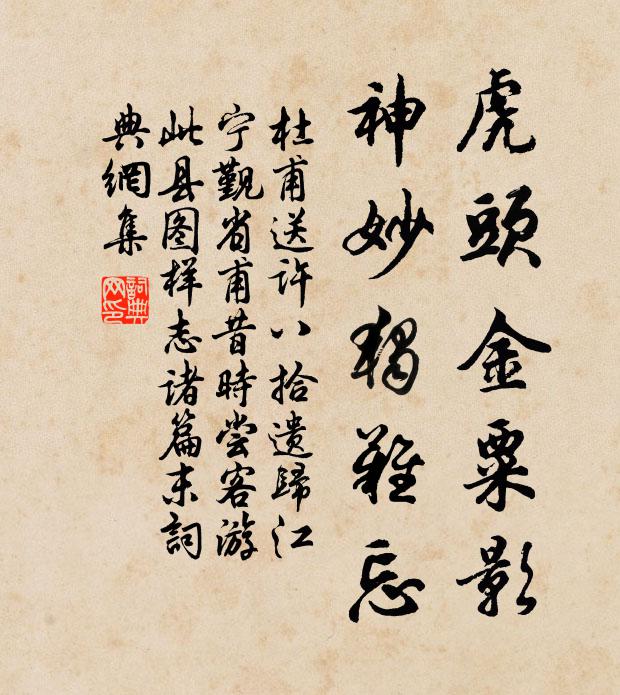 虎頭金粟影
神妙獨難忘
杜甫送許八拾遺歸江
宁觐省甫昔時嘗客游
此县图样志诸篇末詞
典網集
詞典
网印